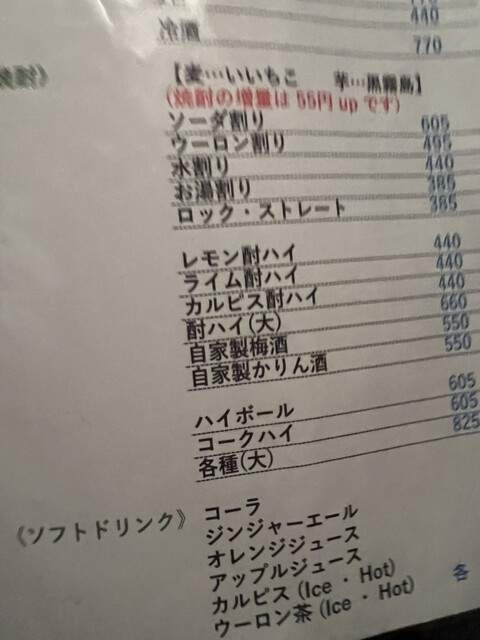 440
冷酒 770
【麦…いいちこ 芋…黒霧島】
(焼酎の増量は 55円 up です)
ソーダ割り 605
ウーロン割り 495
水割り 440
お湯割り 385
ロック・ストレート 385
レモン酎ハイ 440
ライム酎ハイ 440
カルピス酎ハイ 440
酎ハイ(大) 660
自家製梅酒 550
自家製かりん酒 550
ハイボール 605
コークハイ 605
各種(大) 825
《ソフトドリンク》 コーラ
ジンジャーエール
オレンジジュース
アップルジュース
カルピス (Ice ・ Hot)
ウーロン茶 (Ice ・ Hot) 各